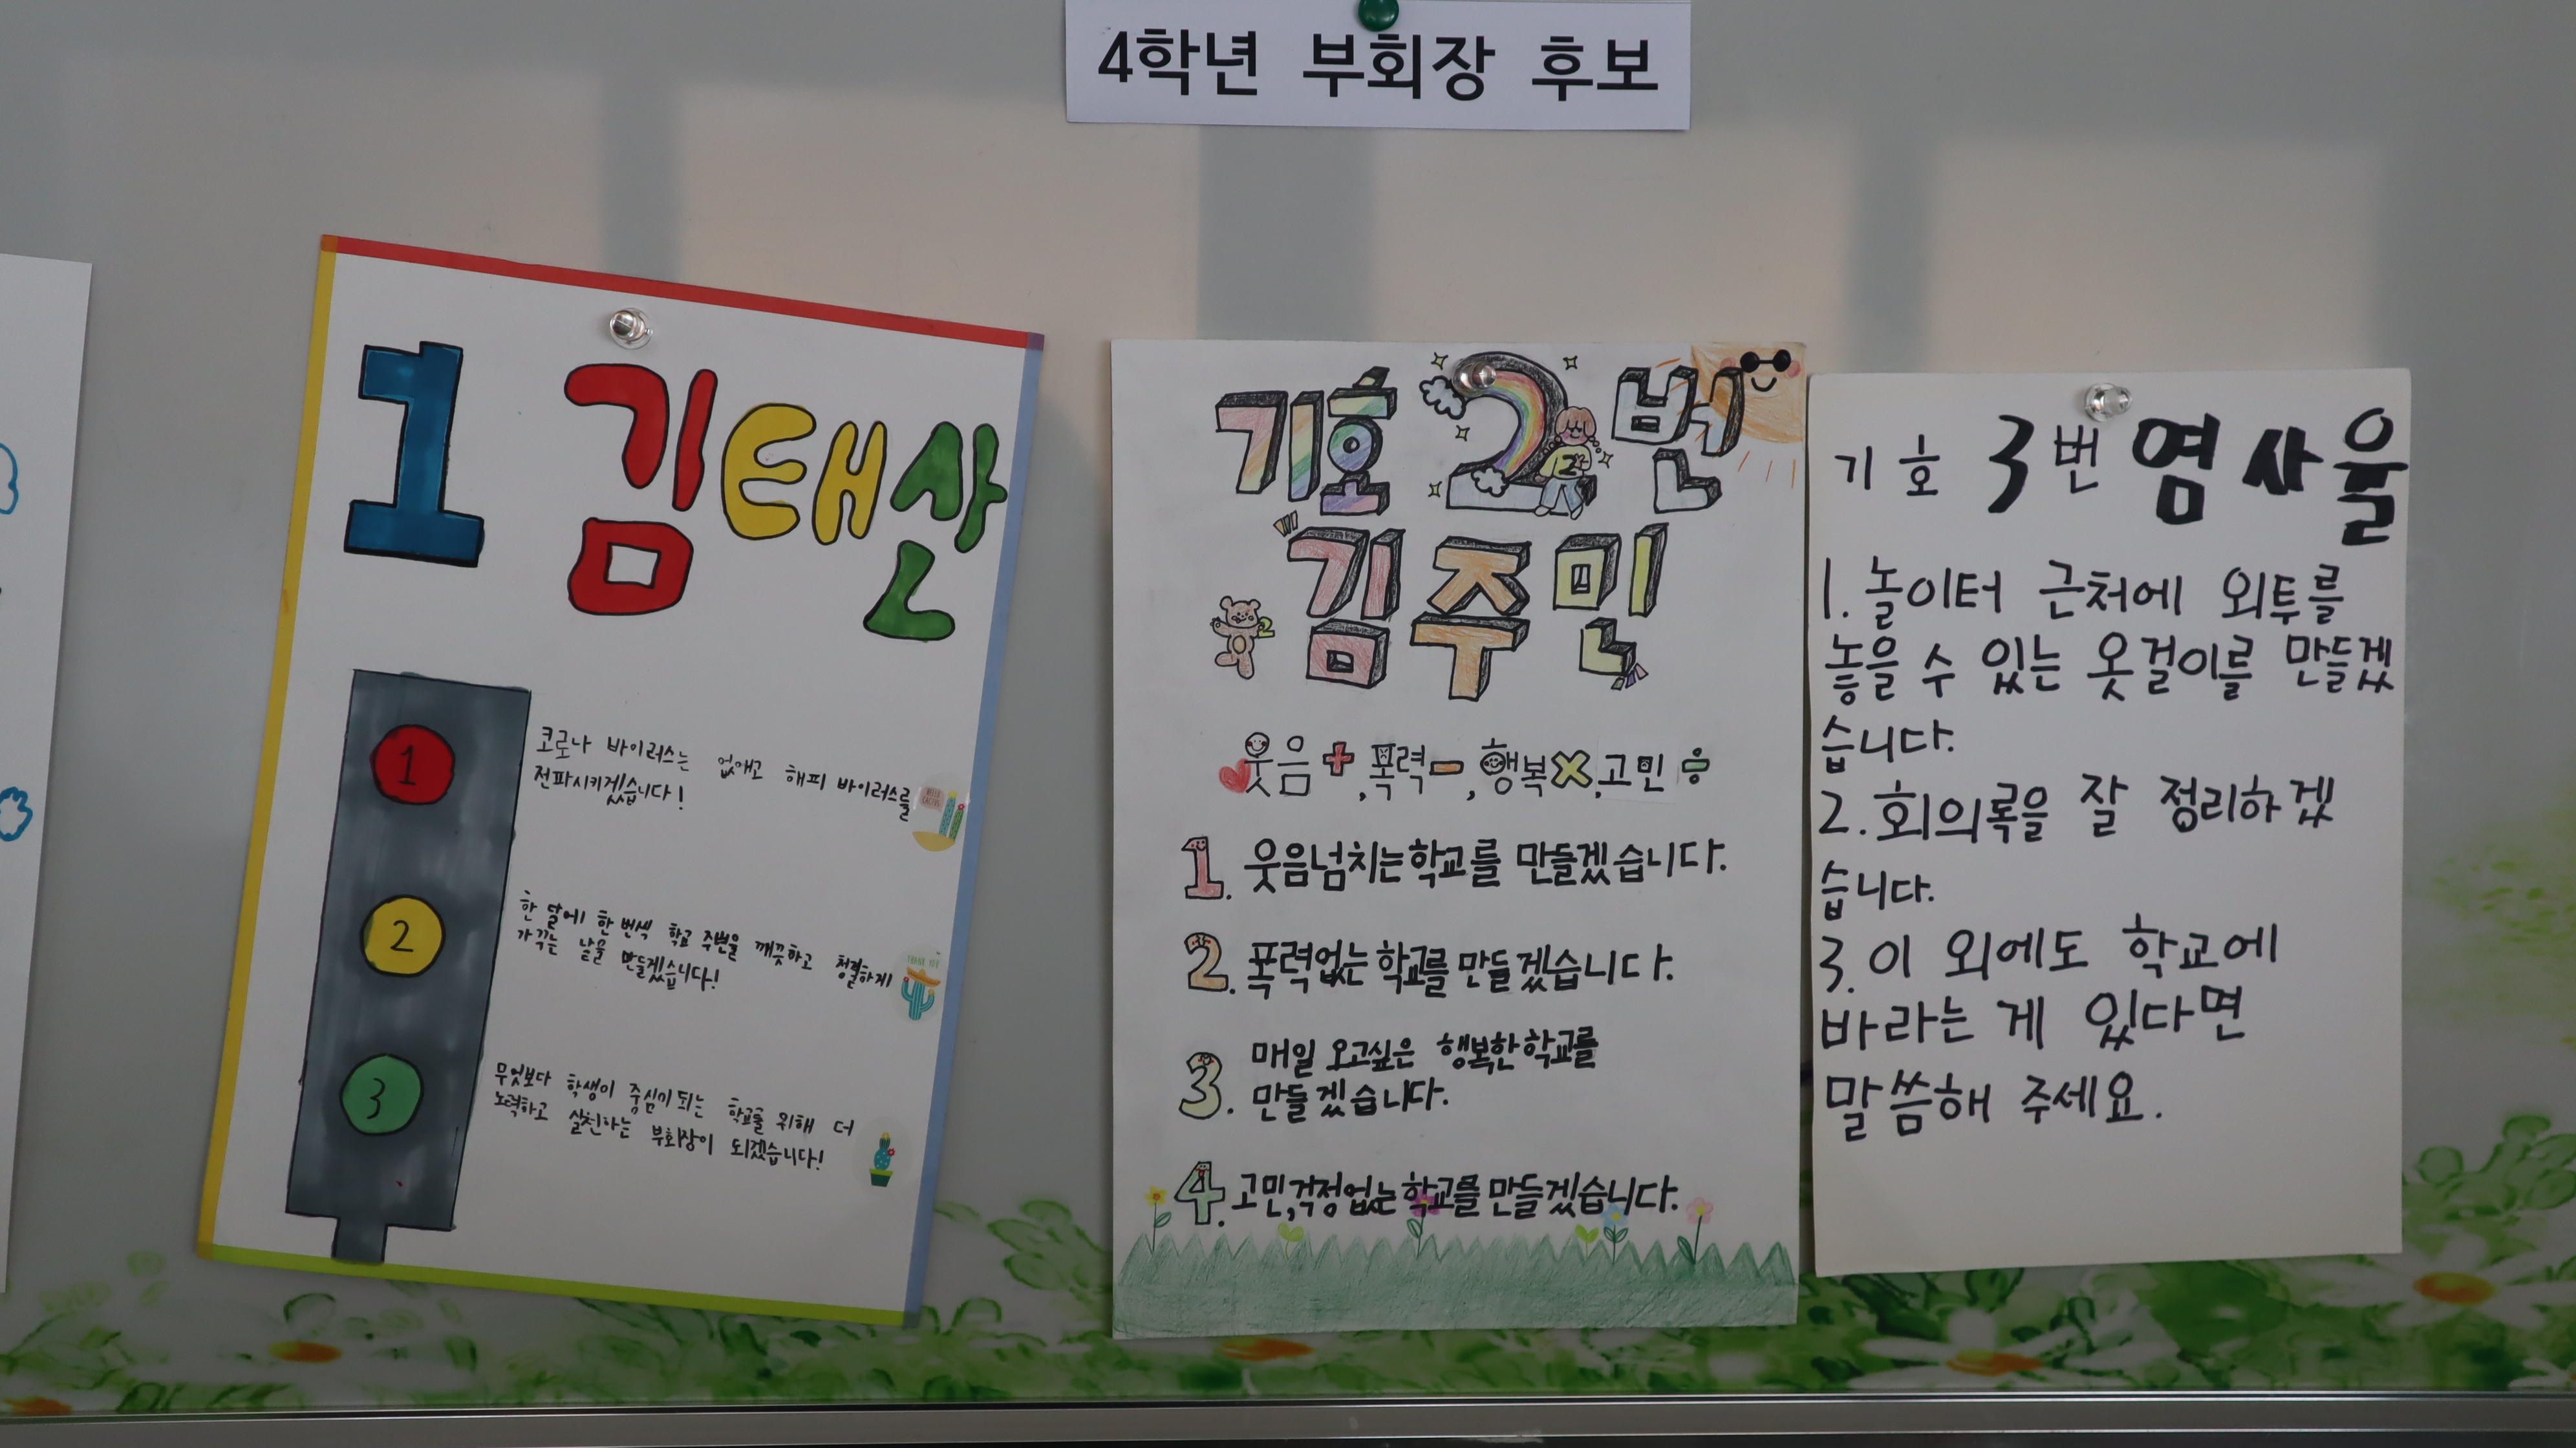 4학년 부회장 후보
1 김태산
1
코로나 바이러스는 없애고 해피 바이러스를
전파시키겠습니다!
2
한 달에 한 번씩 학교 주변을 깨끗하고 청결하게
가꾸는 날을 만들겠습니다!
THANK YOU
3
무엇보다 학생이 중심이 되는 학교를 위해 더
노력하고 실천하는 부회장이 되겠습니다!
기호 2번
김주민
웃음+, 폭력-, 행복×, 고민÷
1. 웃음넘치는학교를 만들겠습니다.
2. 폭력없는 학교를 만들겠습니다.
3. 매일 오고싶은 행복한학교를
만들겠습니다.
4. 고민,걱정없는 학교를 만들겠습니다.
기호 3번 염사율
1. 놀이터 근처에 외투를
놓을 수 있는 옷걸이를 만들겠
습니다.
2. 회의록을 잘 정리하겠
습니다.
3. 이 외에도 학교에
바라는 게 있다면
말씀해 주세요.